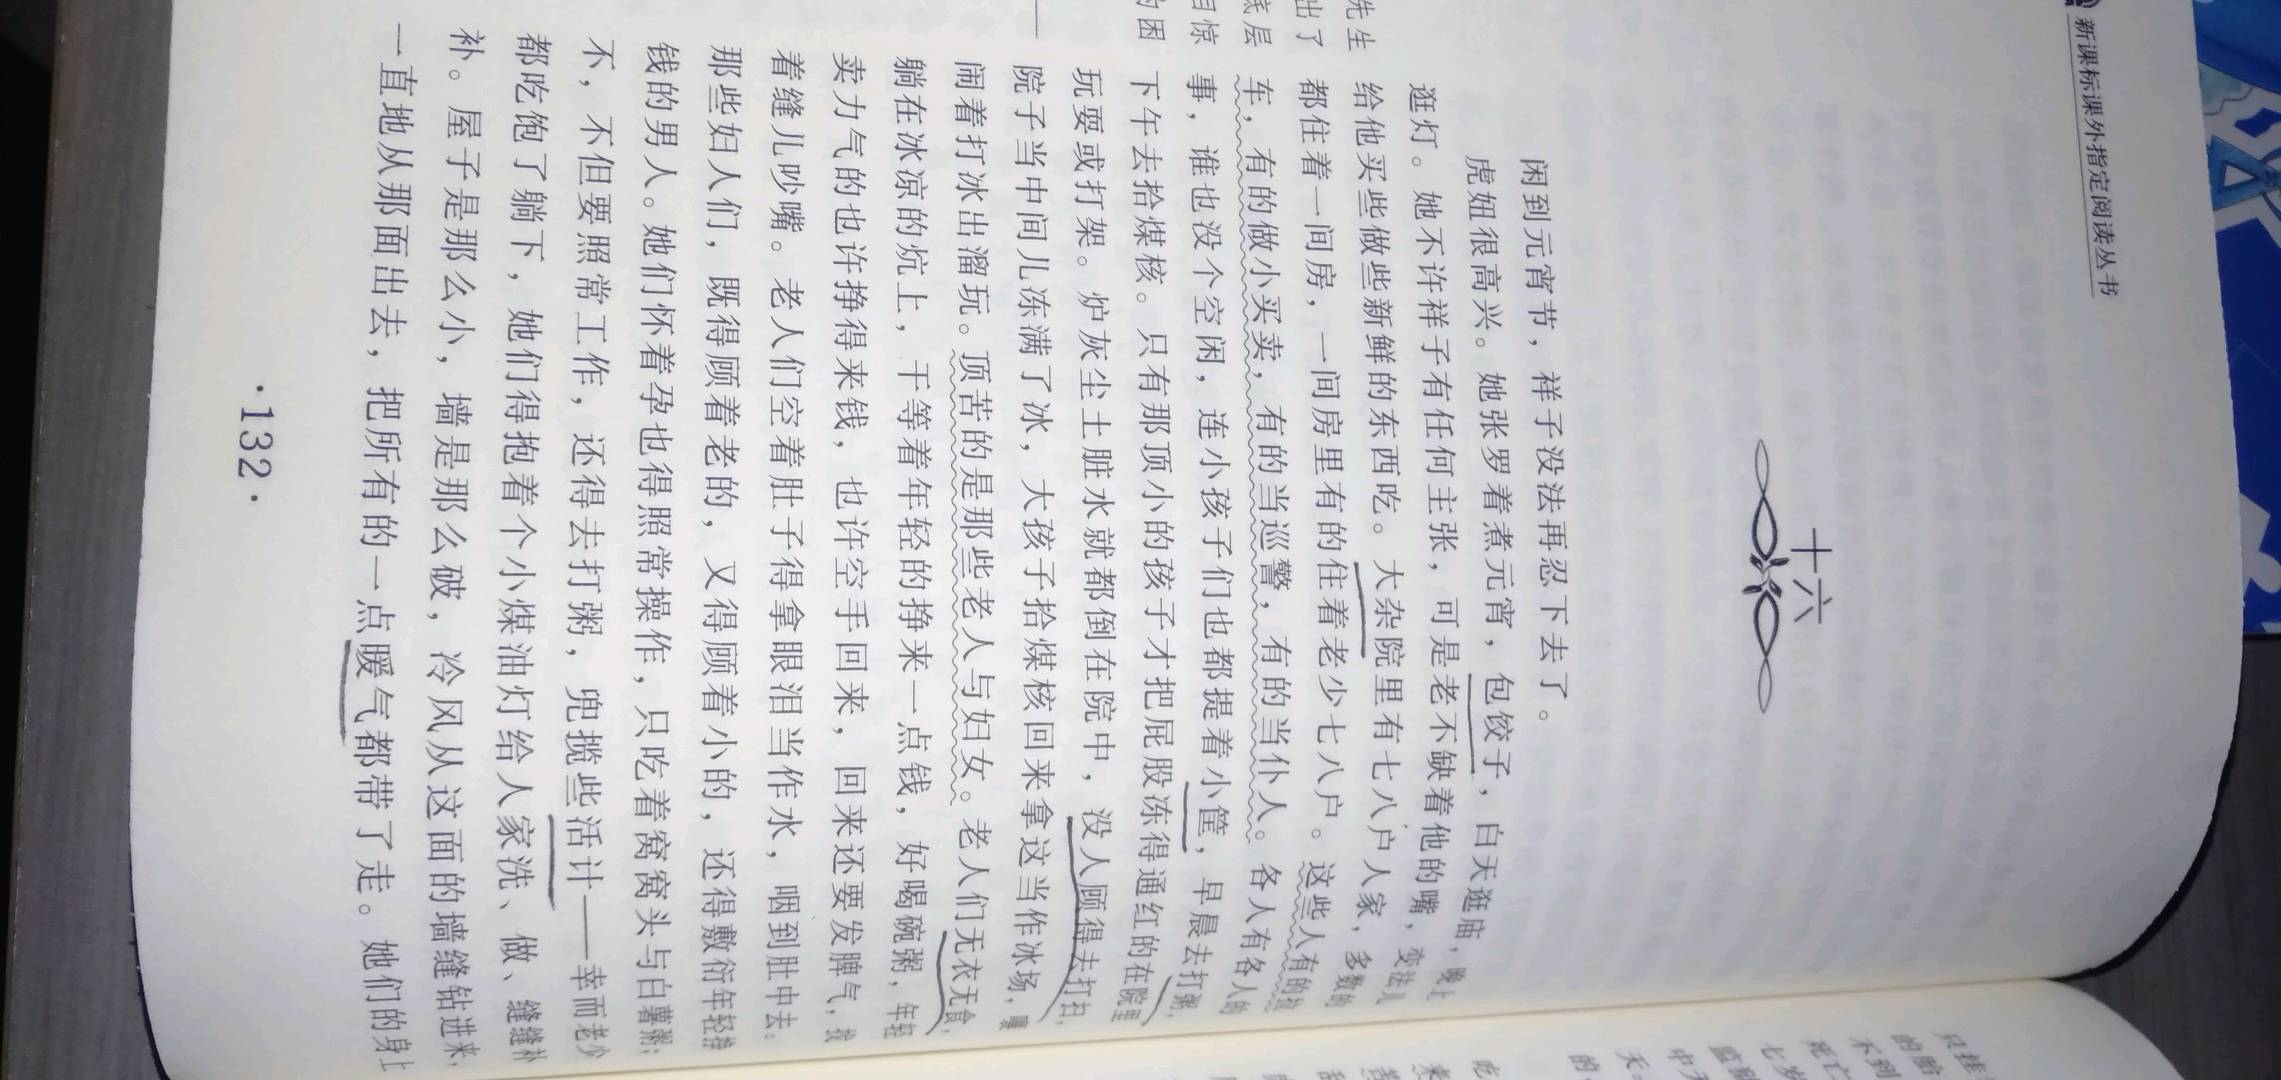 新课标课外指定阅读丛书
十六
闲到元宵节，祥子没法再忍下去了。
虎妞很高兴。她张罗着煮元宵，包饺子，白天逛庙，晚上
逛灯。她不许祥子有任何主张，可是老不缺着他的嘴，变法儿
给他买些做些新鲜的东西吃。大杂院里有七八户人家，多数的
都住着一间房，一间房里有的住着老少七八户。这些人有的拉
车，有的做小买卖，有的当巡警，有的当仆人。各人有各人的
事，谁也没个空闲，连小孩子们也都提着小筐，早晨去打粥，
下午去拾煤核。只有那顶小的孩子才把屁股冻得通红的在院里
玩耍或打架。炉灰尘土脏水就都倒在院中，没人顾得去打扫，
院子当中间儿冻满了冰，大孩子拾煤核回来拿这当作冰场，嚷
闹着打冰出溜玩。顶苦的是那些老人与妇女。老人们无衣无食，
躺在冰凉的炕上，干等着年轻的挣来一点钱，好喝碗粥，年轻
卖力气的也许挣得来钱，也许空手回来，回来还要发脾气，找
着缝儿吵嘴。老人们空着肚子得拿眼泪当作水，咽到肚中去。
那些妇人们，既得顾着老的，又得顾着小的，还得敷衍年轻挣
钱的男人。她们怀着孕也得照常操作，只吃着窝窝头与白薯粥；
不，不但要照常工作，还得去打粥，兜揽些活计——幸而老少
都吃饱了躺下，她们得抱着个小煤油灯给人家洗、做、缝缝补
补。屋子是那么小，墙是那么破，冷风从这面的墙缝钻进来，
一直地从那面出去，把所有的一点暖气都带了走。她们的身上
·132·
先生
出了
底层
目惊
的困